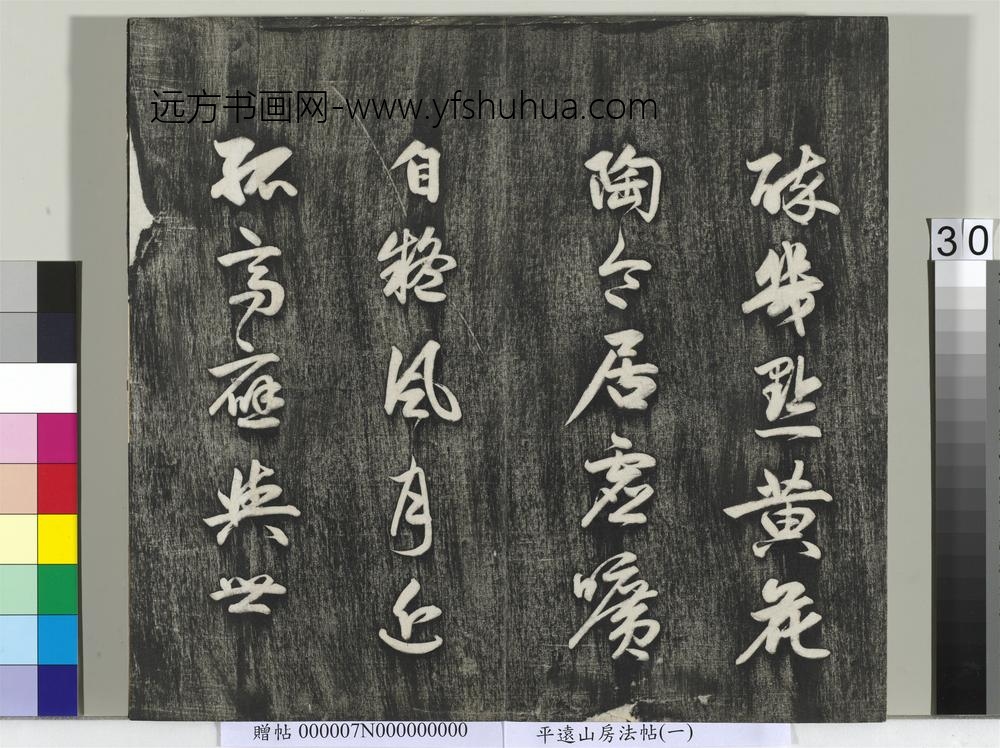 远方书画网-www.yfshuhua.com
疎幾點黃花
陶令居虛曠
自整風月近
孤高應與世
30
贈帖 000007N000000000
平遠山房法帖(一)